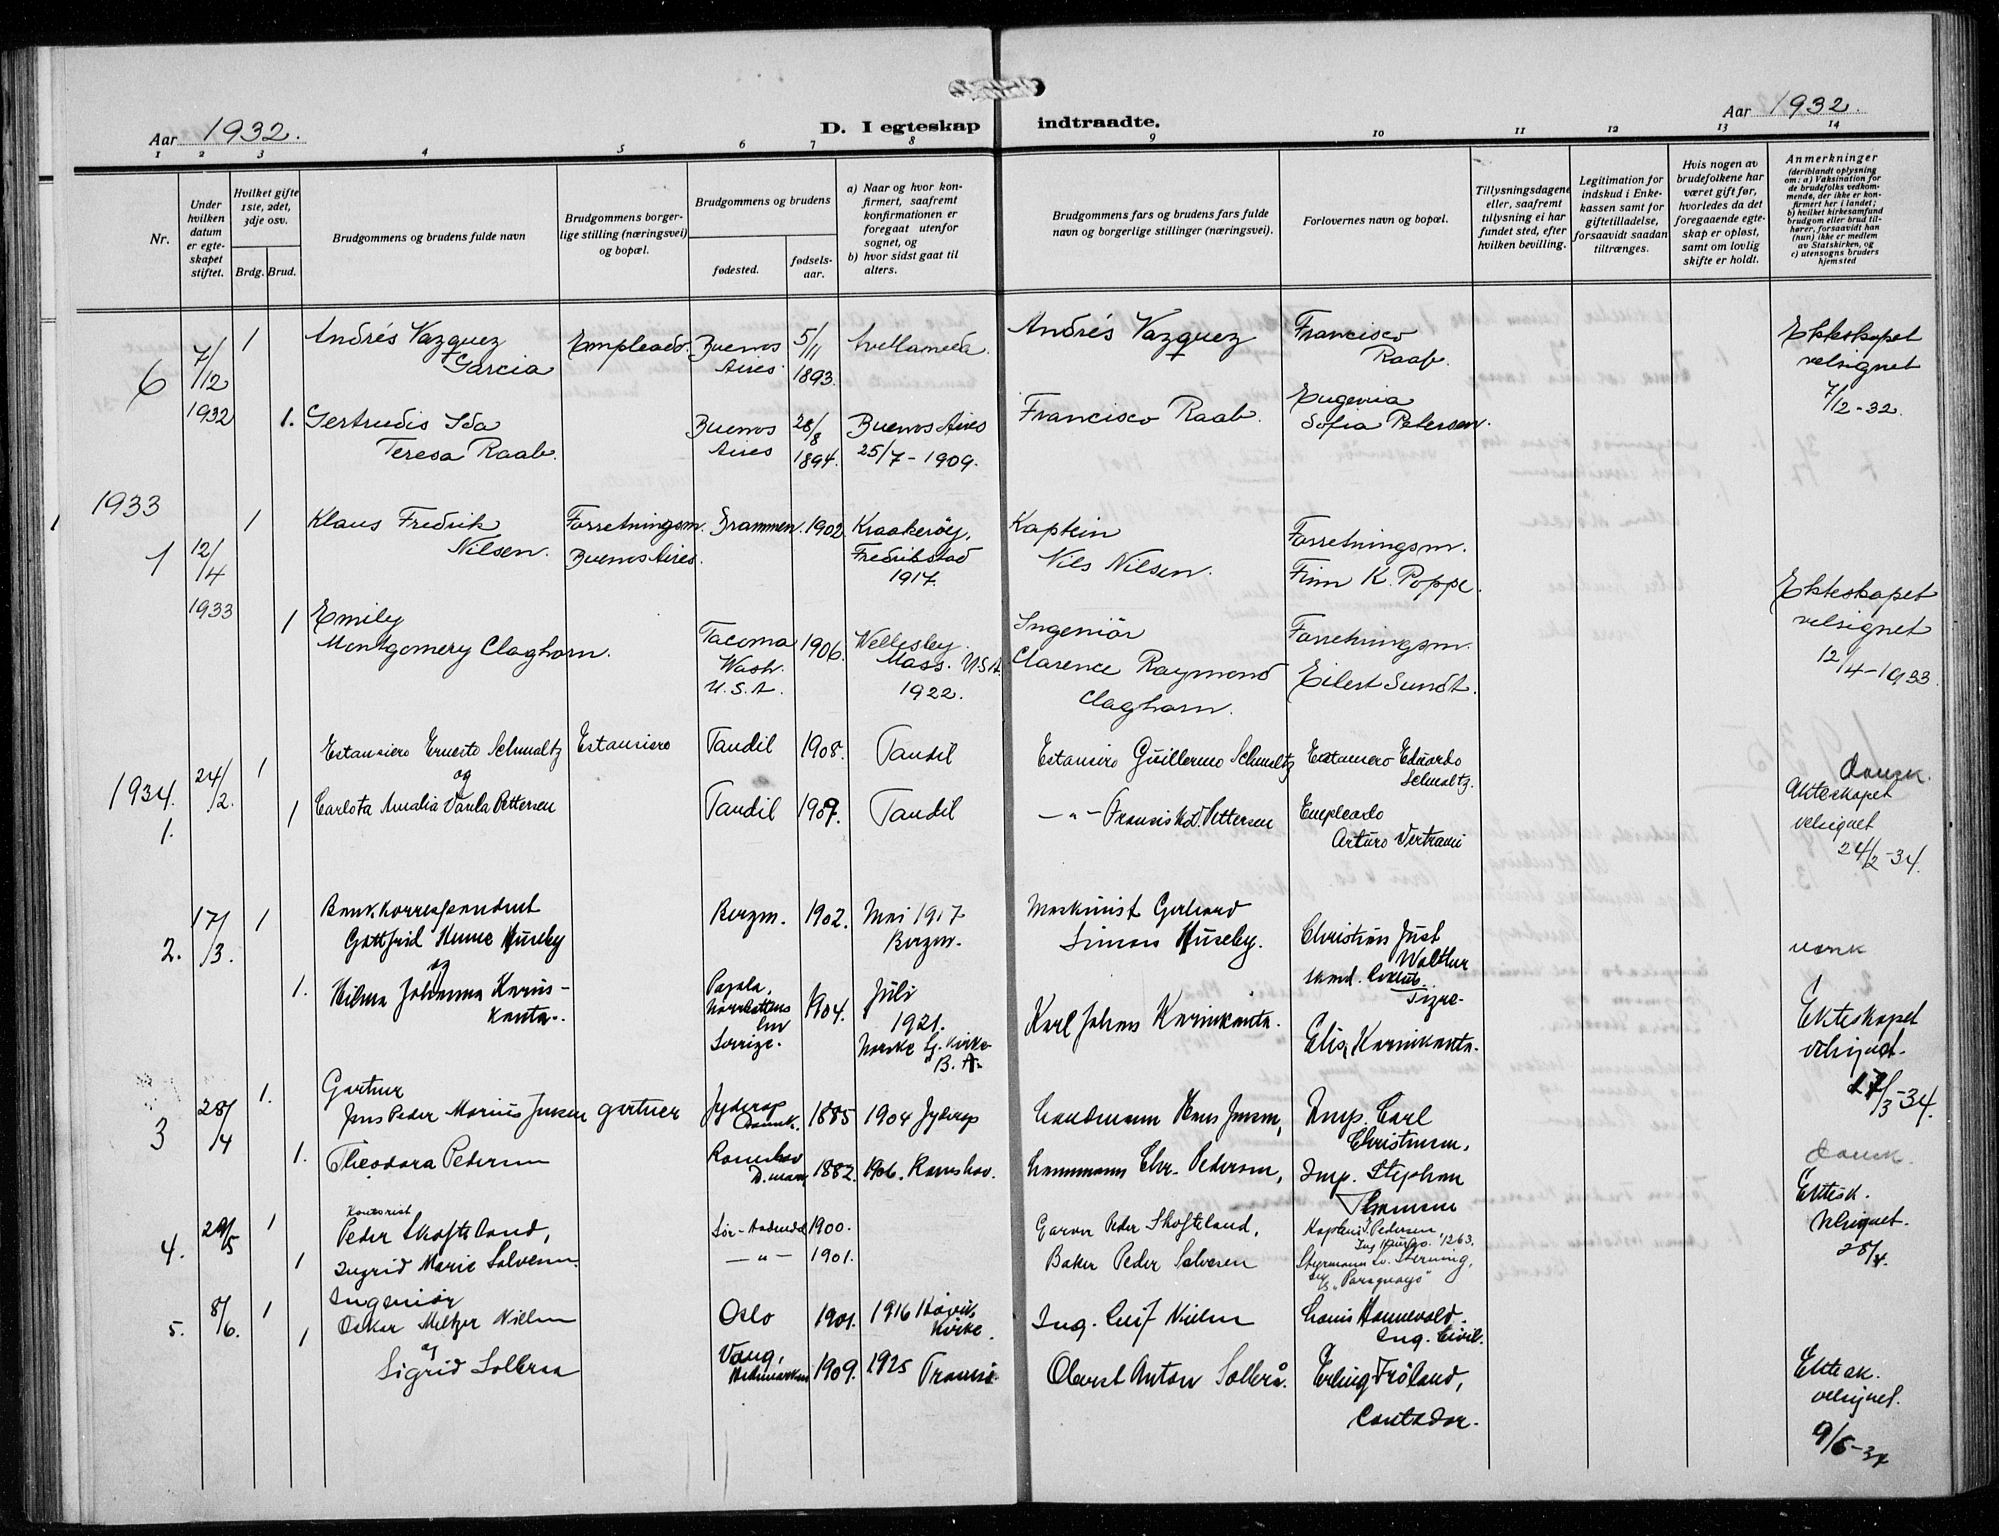 Aar 1932.
D. I egteskap indtraadte.
Aar 1932.
1 2 3 4 5 6 7 8 9 10 11 12 13 14
Nr.
Under hvilken datum er egteskapet stiftet.
Hvilket gifte 1ste, 2det, 3dje osv.
Brdg. Brud.
Brudgommens og brudens fulde navn
Brudgommens borgerlige stilling (næringsvei) og bopæl.
Brudgommens og brudens
fødested.
fødselsaar.
a) Naar og hvor konfirmert, saafremt konfirmationen er foregaat utenfor sognet, og
b) hvor sidst gaat til alters.
Brudgommens fars og brudens fars fulde navn og borgerlige stillinger (næringsvei).
Forlovernes navn og bopæl.
Tillysningsdagene eller, saafremt tillysning ei har fundet sted, efter hvilken bevilling.
Legitimation for indskud i Enkekassen samt for giftetilladelse, forsaavidt saadan tiltrænges.
Hvis nogen av brudefolkene har været gift før, hvorledes da det foregaaende egteskap er opløst, samt om lovlig skifte er holdt.
Anmerkninger
(deriblandt oplysning om: a) Vaksination for de brudefolks vedkommende, der ikke er konfirmert her i landet;
b) hvilket kirkesamfund brudgom eller brud tilhører, forsaavidt han (hun) ikke er medlem av Statskirken, og
c) utensogns bruders hjemsted
6 7/12 1932 1 Andrés Vazquez Garcia Empleado. Buenos Aires 5/11 1893. Avellaneda. Andrés Vazquez Francisco Raab. Ekteskapet velsignet 7/12-32.
1. Gertrudis Ida Teresa Raab. Buenos Aires 28/8 1894. Buenos Aires 25/7-1909. Francisco Raab. Eugenia Sofia Petersen.
1933
1 12/4 1933 1 Klaus Fredrik Nilsen. Forretningsm. Buenos Aires. Drammen. 1902 Kraakerøy, Fredrikstad 1917. Kaptein Nils Nilsen. Forretningsm. Finn K. Poppe.
1 Emily Montgomery Claghorn. Tacoma Wash. U.S.A. 1906. Wellesley Mass. U.S.A. 1922. Ingeniør Clarence Raymond Claghorn. Forretningsm. Eilert Sundt. Ekteskapet velsignet 12/4-1933.
1934. 1. 24/2. 1 Estansiero Ernesto Schmaltz og Estansiero Tandil 1908. Tandil Estansiero Guillermo Schmaltz Estansiero Eduardo Schmaltz. dansk. Ekteskapet velsignet 24/2-34.
1 Carlota Amalia Paula Pettersen Tandil 1909. Tandil -"- Fransisko Pettersen Empleado Arturo
2. 17/3. 1 Bankkorrespondent Gottfrid Huseby og Bergen. 1902. Mai 1917 Bergen. Maskinist Gerhard Simon Huseby. Christian Just Walther Tigre. norsk
1. Hilma Johanna Karinkanta. Pajala, Norrbottens len Sverige. 1904. Juli 1921. Norske Sj. Kirke B. A. Karl Johan Karinkanta. Elis Karinkanta. Ekteskapet velsignet. 17/3-34.
3 28/4 1. Gartner Jens Peder Marius Jensen gartner Jyderup Danmk. 1885 1904 Jyderup Landmann Hans Jensen, Imp. Carl Christensen,
1. Theodora Pedersen D.mark 1882. 1906. Landmann Chr. Pedersen, Imp. Stephan dansk. Ektesk. Velsignet. 28/4.
4. 29/5 1 Kontorist Peder Skofteland, 1900. Peder Skofteland, Kaptein J. Pedersen 1263.
1 Ingrid Marie Salvesen. -"- 1901. Baker Peder Salvesen Styrmann Sv. Sterning, "Paraguayo"
5. 8/6. 1 Ingeniør Oskar Meltzer Nielsen og Oslo 1901. 1916 kirke. Ing. Leif Nielsen Louis Hannevold. Ing. Civil.
1 Sigrid Solbraa Vang, Hedmarken 1909. 1925 Tromsø Oberst Anton Solbraa. Erling Frøland, Contador. Ektesk. velsignet. 9/6-34